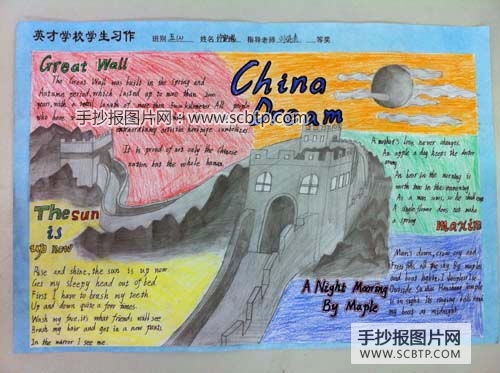 英才学校学生习作 班别 五(2) 姓名 指导老师 等奖
Great Wall
The Great Wall was built in the spring and
Autumn period, which lasted up to more than
years, with a total length of more than All people
who have
extraordinary
It is proud of not only the Chinese
nation but the whole human.
China
Dream
手抄报图片网:www.scbtp.com
A miget's lose never changes.
An apple a day keeps the doctor
away.
An hour in the morning is
worth two in the evening.
As a man sows, so he shall reap
A single flower does not make
a spring.
maxim
The sun
is
up now
Rise and shine, the sun is up now
Get my sleepy head out of bed
First I have to brush my teeth
Up and down quite a few times.
Wash my face, it's what friends will see
Brush my hair and get in a new pants.
In the mirror I see me.
A Night Mooring
By Maple
Moon's down, crows cry and
Frosts fill all the sky by maples
and boat lights, I sleepless lie.
Outside Su Zhou Hanshang temple
is in sight. Its ringing bells reach
my boat at midnight.
手抄报图片网
WWW.SCBTP.COM